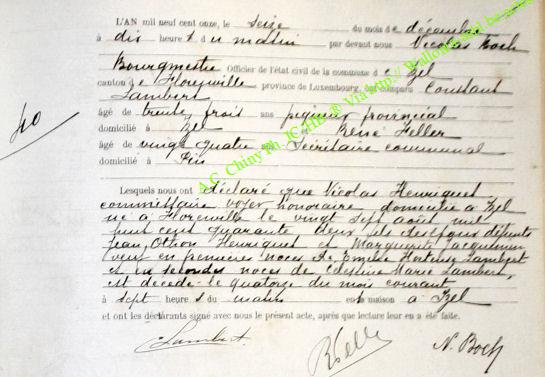 40
L'AN mil neuf cent onze, le seize du mois de décembre
à dix heures du matin par devant nous Nicolas Boch
Bourgmestre Officier de l'état civil de la commune d'Izel
canton de Florenville province de Luxembourg, ont comparu Constant
Lambert
âgé de trente trois ans piqueur provincial
domicilié à Izel René Feller
âgé de vingt quatre ans Secrétaire communal
domicilié à Pin
Lesquels nous ont déclaré que Nicolas Henriquet
commissaire voyer honoraire domicilié à Izel
né à Florenville le vingt sept août mil
huit cent quarante deux fils des époux défunts
Jean Henriquet et Marguerite Jacquemin
veuf en premières noces de Hortense Lambert
et en secondes noces de Marie Lambert,
est décédé le quatorze du mois courant
à sept heures du matin en sa maison à Izel
et ont les déclarants signé avec nous le présent acte, après que lecture leur en a été faite.
Lambert RFeller N. Boch
A.C. Chiny Ph. JC Via http://